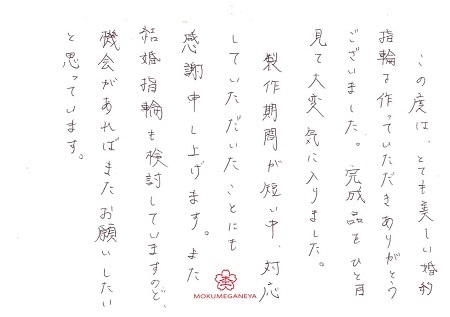 この度は、とても美しい婚約
指輪を作っていただきありがとう
ございました。完成品をひと目
見て大変気に入りました。
製作期間が短い中、対応
していただいたことにも
感謝申し上げます。また
結婚指輪も検討していますので、
機会があればまたお願いしたい
と思っています。
MOKUMEGANEYA